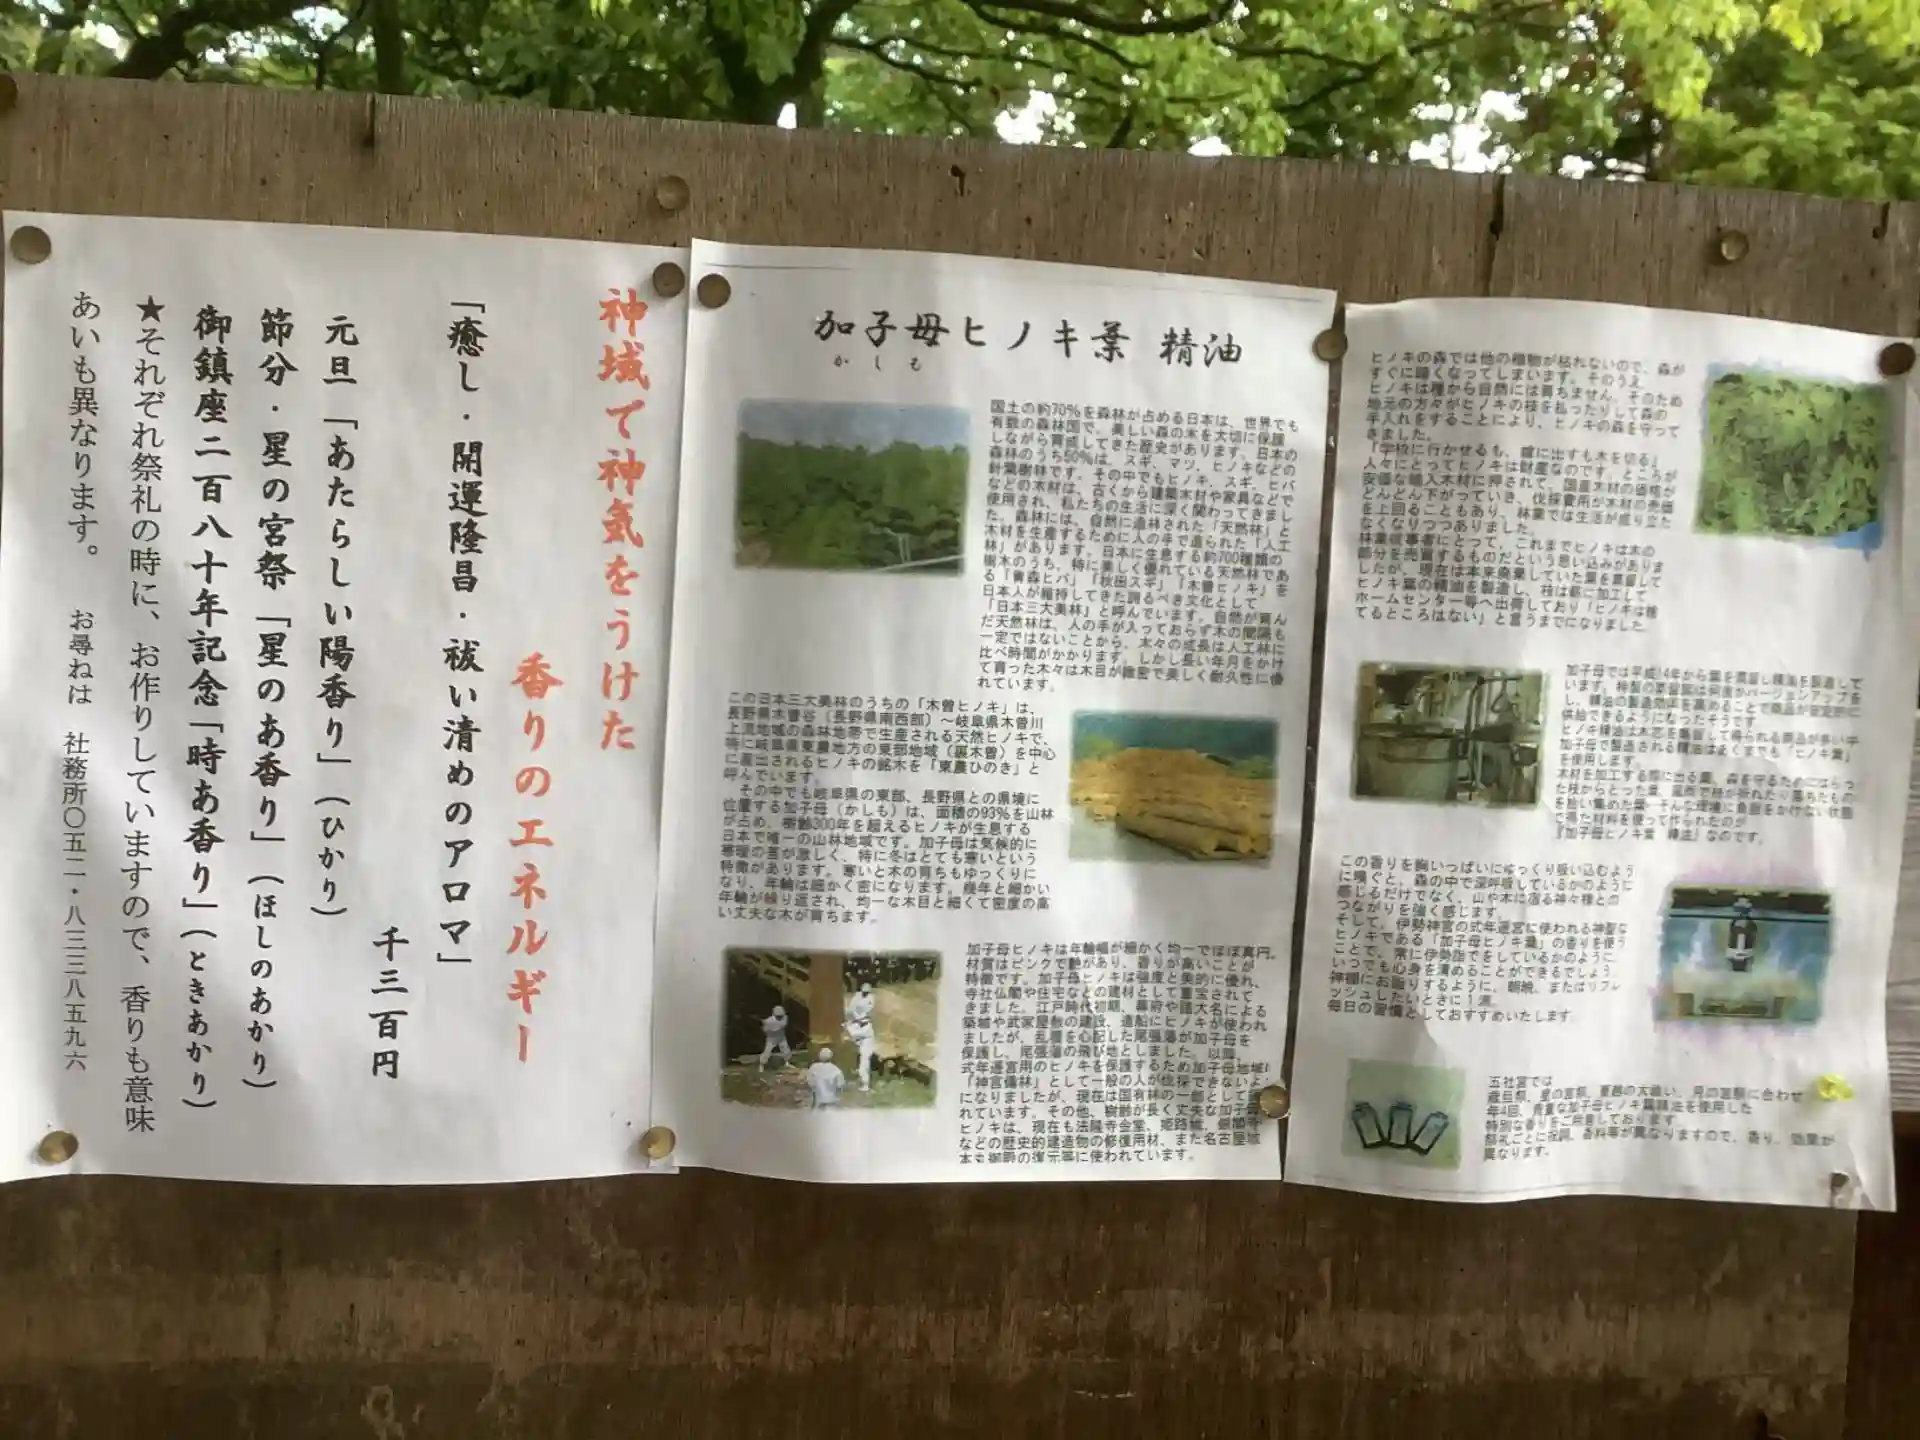 神域で神気をうけた
香りのエネルギー
「癒し・開運隆昌・祓い清めのアロマ」
千三百円
元旦「あたらしい陽香り」(ひかり)
節分・星の宮祭「星のあ香り」(ほしのあかり)
御鎮座二百八十年記念「時あ香り」(ときあかり)
★それぞれ祭礼の時に、お作りしていますので、香りも意味
あいも異なります。 お尋ねは 社務所〇五二・八三三八五九六
加子母ヒノキ葉 精油
かしも
国土の約70%を森林が占める日本は、世界でも
有数の森林国で、美しい森の木を大切に保護
しながら育成してきた歴史があります。日本の
森林のうち50%は、スギ、マツ、ヒノキなどの
針葉樹林です。その中でもヒノキ、スギ、ヒバ
などの木材は、古くから建築木材や家具などで
使用され、私たちの生活に深く関わってきまし
た。森林には、自然に造林された「天然林」と
木材を生産するために人の手で造られた「人工
林」があります。日本に生息する約700種類の
樹木のうち、特に美しく優れている天然林であ
る「青森ヒバ」「秋田スギ」「木曽ヒノキ」を
日本人が維持してきた誇るべき文化として
「日本三大美林」と呼んでいます。自然が育ん
だ天然林は、人の手が入っておらず木の間隔も
一定ではないことから、木々の成長は人工林に
比べ時間がかかります。しかし長い年月をかけ
て育った木々は木目が緻密で美しく耐久性に優
れています。
この日本三大美林のうちの「木曽ヒノキ」は、
長野県木曽谷(長野県南西部)～岐阜県木曽川
上流地域の森林地帯で生産される天然ヒノキで、
特に岐阜県東濃地方の東部地域(裏木曽)を中心
に産出されるヒノキの銘木を「東濃ひのき」と
呼んでいます。
その中でも岐阜県の東部、長野県との県境に
位置する加子母(かしも)は、面積の93%を山林
が占め、樹齢300年を超えるヒノキが生息する
日本で唯一の山林地域です。加子母は気候的に
寒暖の差が激しく、特に冬はとても寒いという
特徴があります。寒いと木の育ちもゆっくりに
なり、年輪は細かく密になります。幾年と細かい
年輪が繰り返され、均一な木目と細くて密度の高
い丈夫な木が育ちます。
加子母ヒノキは年輪幅が細かく均一でほぼ真円。
材質はピンクで艶があり、香りが高いことが
特徴です。加子母ヒノキは強度と美的に優れ、
寺社仏閣や住宅などの建材として重宝されて
きました。江戸時代初期、幕府や諸大名による
築城や武家屋敷の建設、造船にヒノキが使われ
ましたが、乱獲を心配した尾張藩が加子母を
保護し、尾張藩の飛び地としました。以降、
式年遷宮用のヒノキを保護するため加子母地域は
「神宮備林」として一般の人が伐採できないよ
になりましたが、現在は国有林の一部として
れています。その他、樹齢が長く丈夫な加子母
ヒノキは、現在も法隆寺金堂、姫路城、銀閣寺
などの歴史的建造物の修復用材、また名古屋城
本丸御殿の復元等に使われています。
ヒノキの森では他の植物が枯れないので、森が
すぐに暗くなってしまいます。そのうえ、
ヒノキは種から自然には育ちません。そのため
地元の方々がヒノキの枝を払ったりして森の
手入れをすることにより、ヒノキの森を守って
きました。
「学校に行かせるも、嫁に出すも木を切る」
人々にとってヒノキは財産なのです。ところが
安価な輸入木材に押されて、国産木材の価格が
どんどん下がっていき、伐採費用が木材の売価
を上回ることもあり、林業では生活が成り立た
なくなりつつありました。
林業従事者にとって、これまでヒノキは木の
部分を売買するものだという思い込みがありま
したが、現在は本来廃棄していた葉を蒸留して
ヒノキ葉の精油を製造し、枝は薪に加工して
ホームセンター等へ出荷しており「ヒノキは捨
てるところはない」と言うまでになりました。
加子母では平成14年から葉を蒸留し精油を製造して
います。特製の蒸留器は何度かバージョンアップを
し、精油の製造効率を高めることで商品が安定的に
供給できるようになったそうです。
ヒノキ精油は木芯を蒸留して得られる商品が多い中
加子母で製造される精油はあくまでも「ヒノキ葉」
を使用します。
木材を加工する際に出る葉、森を守るためにはらっ
た枝からとった葉、風雨で枝が折れたり落ちたもの
を拾い集めた葉…そんな環境に負担をかけない状態
で得た材料を使って作られたのが
『加子母ヒノキ葉 精油』なのです。
この香りを胸いっぱいにゆっくり吸い込むよう
に嗅ぐと、森の中で深呼吸しているかのように
感じるだけでなく、山や木に宿る神々様との
つながりを強く感じます。
そして、伊勢神宮の式年遷宮に使われる神聖な
ヒノキである「加子母ヒノキ葉」の香りを使う
ことで、常に伊勢詣でをしているかのように、
いつでも心身を清めることができるでしょう。
神棚にお祈りするように、朝晩、またはリフレ
ッシュしたいときに1滴。
毎日の習慣としておすすめいたします。
五社宮では
歳旦祭、星の宮祭、夏越の大祓い、月の宮祭に合わせ
年4回、貴重な加子母ヒノキ葉精油を使用した
特別な香りをご用意しております。
祭礼ごとに祝詞、香料等が異なりますので、香り、効果が
異なります。